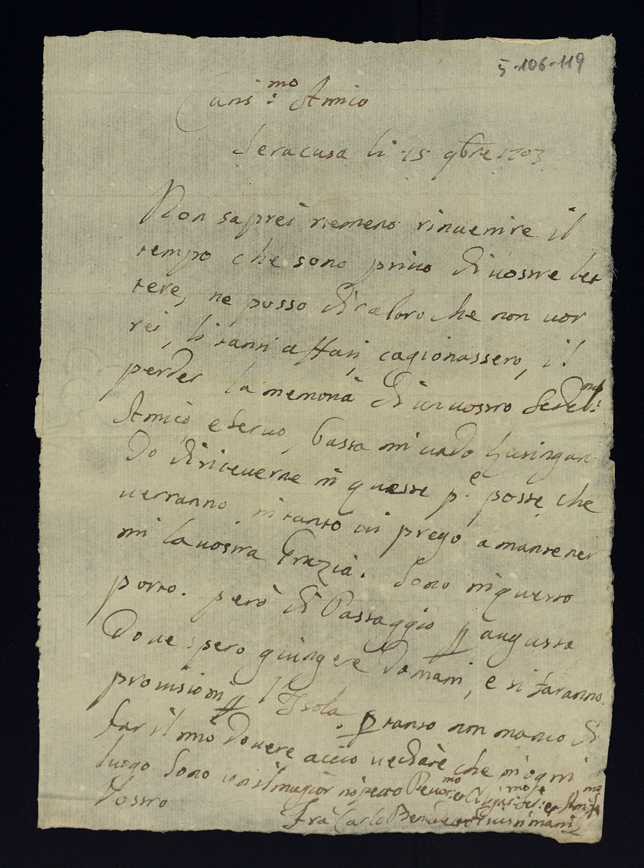 5-106-119
Caris:mo Amico
Seracusa li 15 9bre 1703
Non saprei nemeno rinuenire il
tempo che sono priuo di uostre let
tere, ne posso dir a loro che non uor
rei, li tanti affari, cagionassero, il
perder la memoria di un uostro fedel:mo
Amico, e Seruo, basta mi uado lusingan
do di riceuerne in queste p.e poste che
uerranno intanto ui prego a mantener
mi la uostra Grazia. Sono in questo
porto. però di Passaggio p augusta
doue spero giungere domani, e si faranno
prouisioni p l'Isola. p tanto non manco di
far il mio douere accio uediate che in ogni
luogo sono con il magior rispetto
Vostro
Fra Carlo